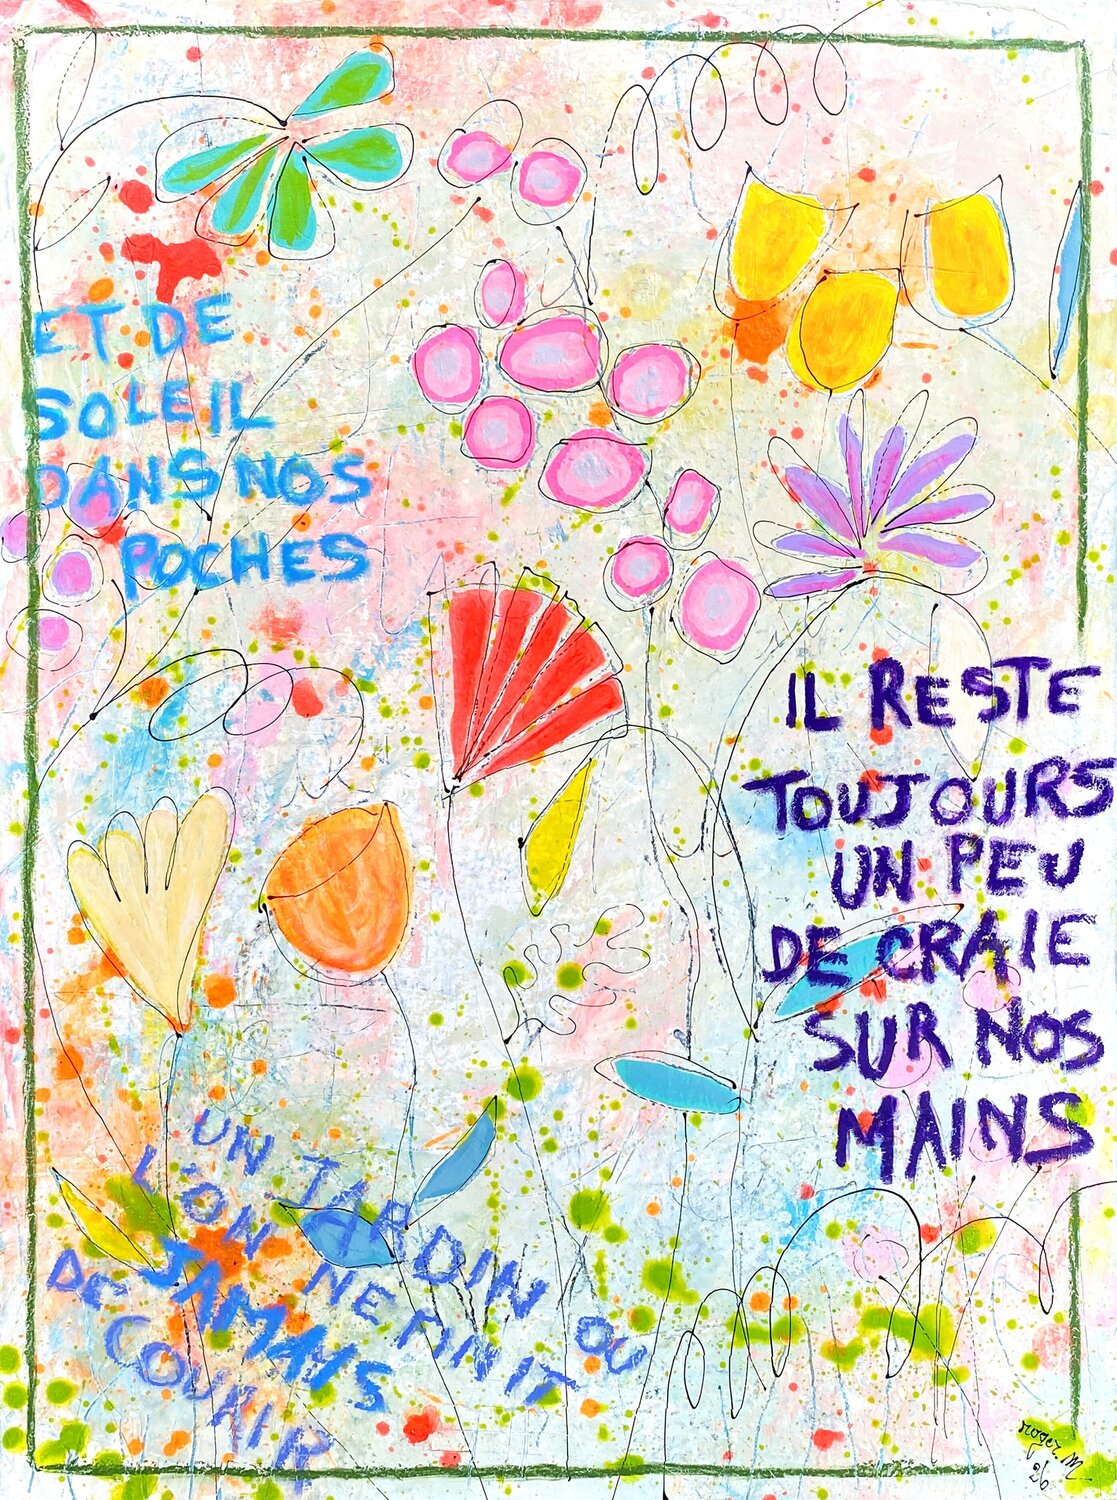 ET DE
SOLEIL
DANS NOS
POCHES
IL RESTE
TOUJOURS
UN PEU
DE CRAIE
SUR NOS
MAINS
UN JARDIN OÙ
L'ON NE FINIT
JAMAIS
DE COURIR
roger. M
26